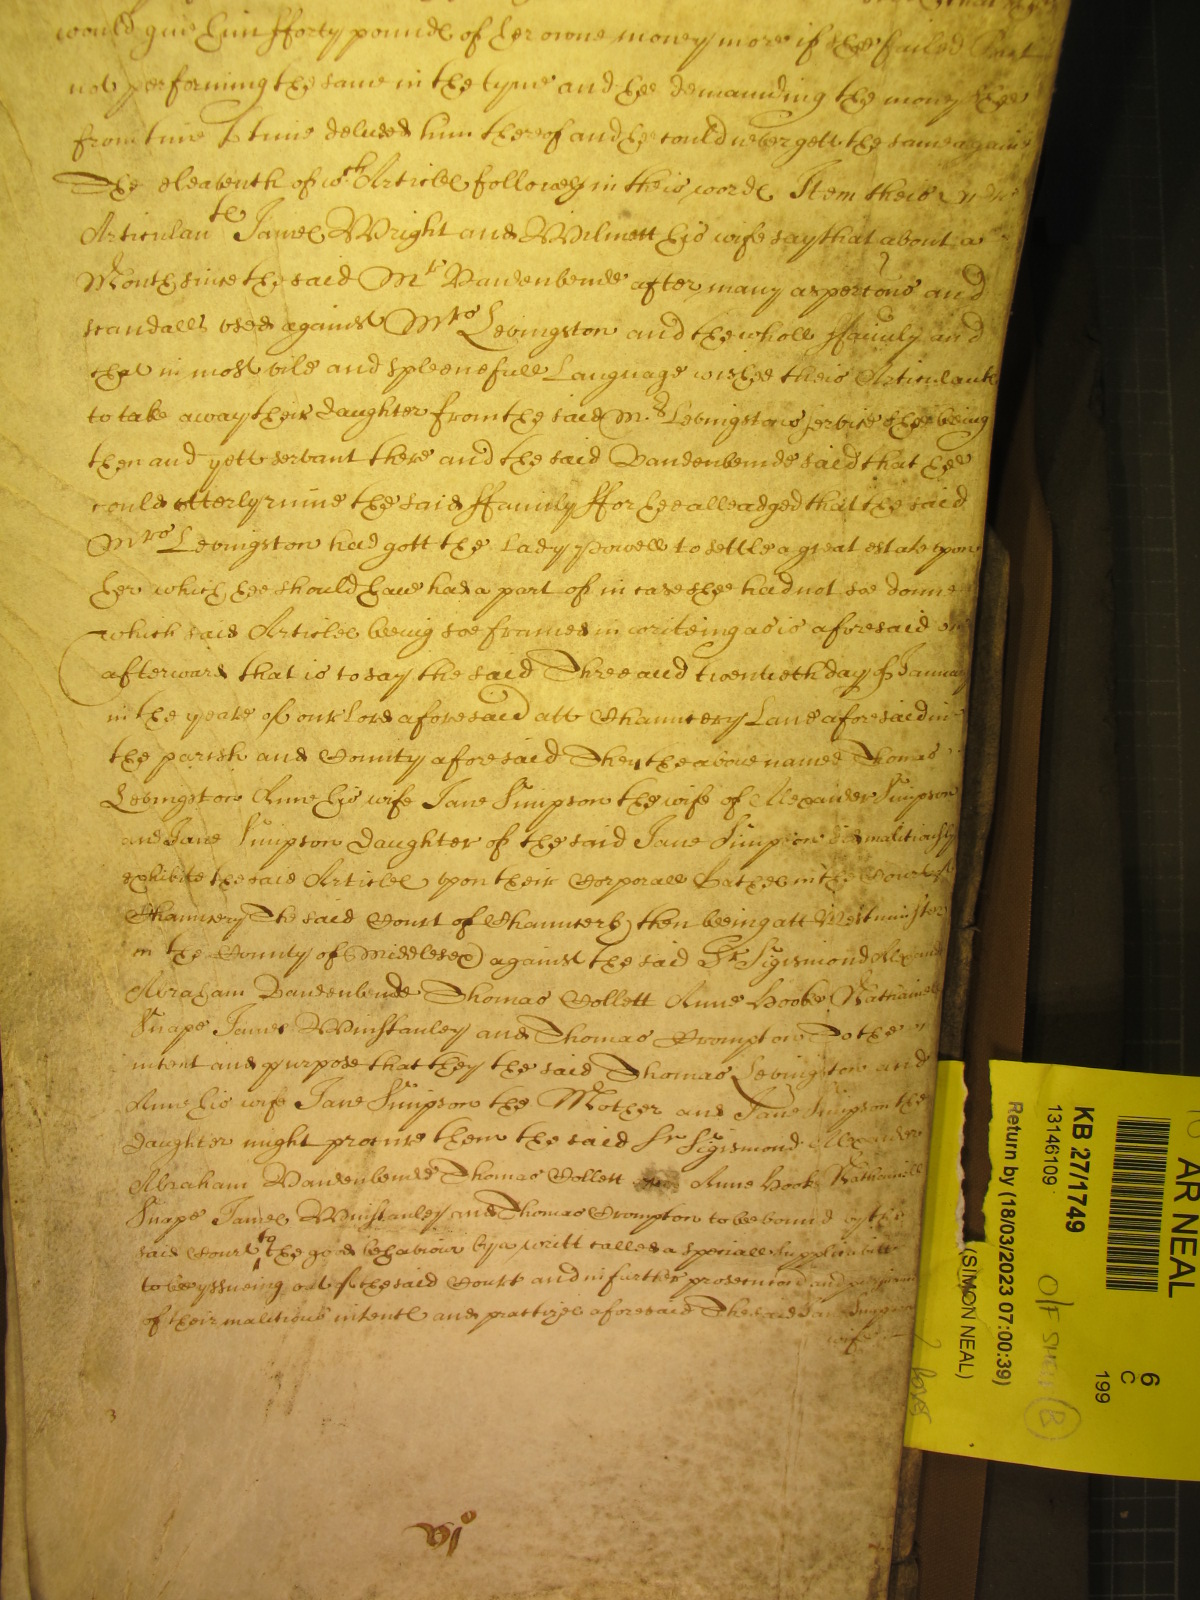 would give him fforty pound℮ of her owne money more if shee failed but
not performing the same in the tyme and hee demaunding the money shee
from time to time deluded him thereof and hee could never gett the same againe
The eleaventh of wch Article℮ followes in theis word℮ Item theis
Articulante James Wright and Wilmott his wife say that about a
Month since the said Mr Vandenbende after many aspertons and
scandalls used against Mrs Levingston and the wholl ffamily and
that in most vile and spleenefull Language wished theis Articulant℮
to take away their daughter from the said Mrs Levingstons service shee being
then and yett servant there and the said Vandenbende said that hee
could utterly ruine the said ffamily ffor hee alleadged that the said
Mrs Levingston had gott the Lady Powell to settle a great estate upon
her which hee should have had a part of in case shee had not soe donne
which said Article℮ being soe framed in writeing as is aforesaid
afterward that is to say the said Three and twentieth day of January
in the yeare of our Lord aforesaid att Chauncery Lane aforesaid in
the parish and County aforesaid They the above named Thomas
Levingston Anne his wife Jane Simpson the wife of Alexander Simpson
and Jane Simpson daughter of the said Jane Simpson did malitiously
exhibite the said Article℮ upon their Corporall Oathes in the Court of
Chauncery (The said Court of Chauncery then being att Westminster
in the County of Middlesex) against the said Sr Sigismond Alexander
Abraham Vandenbende Thomas Collett Anne Hooke Nathaniell
Snape James Winstanley and Thomas Crompton To the
intent and purpose that they the said Thomas Levingston and
Anne his wife Jane Simpson the Mother and Jane Simpson the
daughter might procure them the said Sr Sigismond Alexander
Abraham Vandenbende Thomas Collett Anne Hooke Nathaniell
Snape James Winstanley and Thomas Crompton to be bound by the
said Court to the good behaviour by a writt called a speciall Supplicavit
to bee yssueing out of the said Court and in further prosecucion and
of their malitious intent℮ and practizes aforesaid The said Jane Simpson
wife
AR NEAL
KB 27/1749
13146109
Return by (18/03/2023 07:00:39)
(SIMON NEAL)
6
C
199
O/F
B